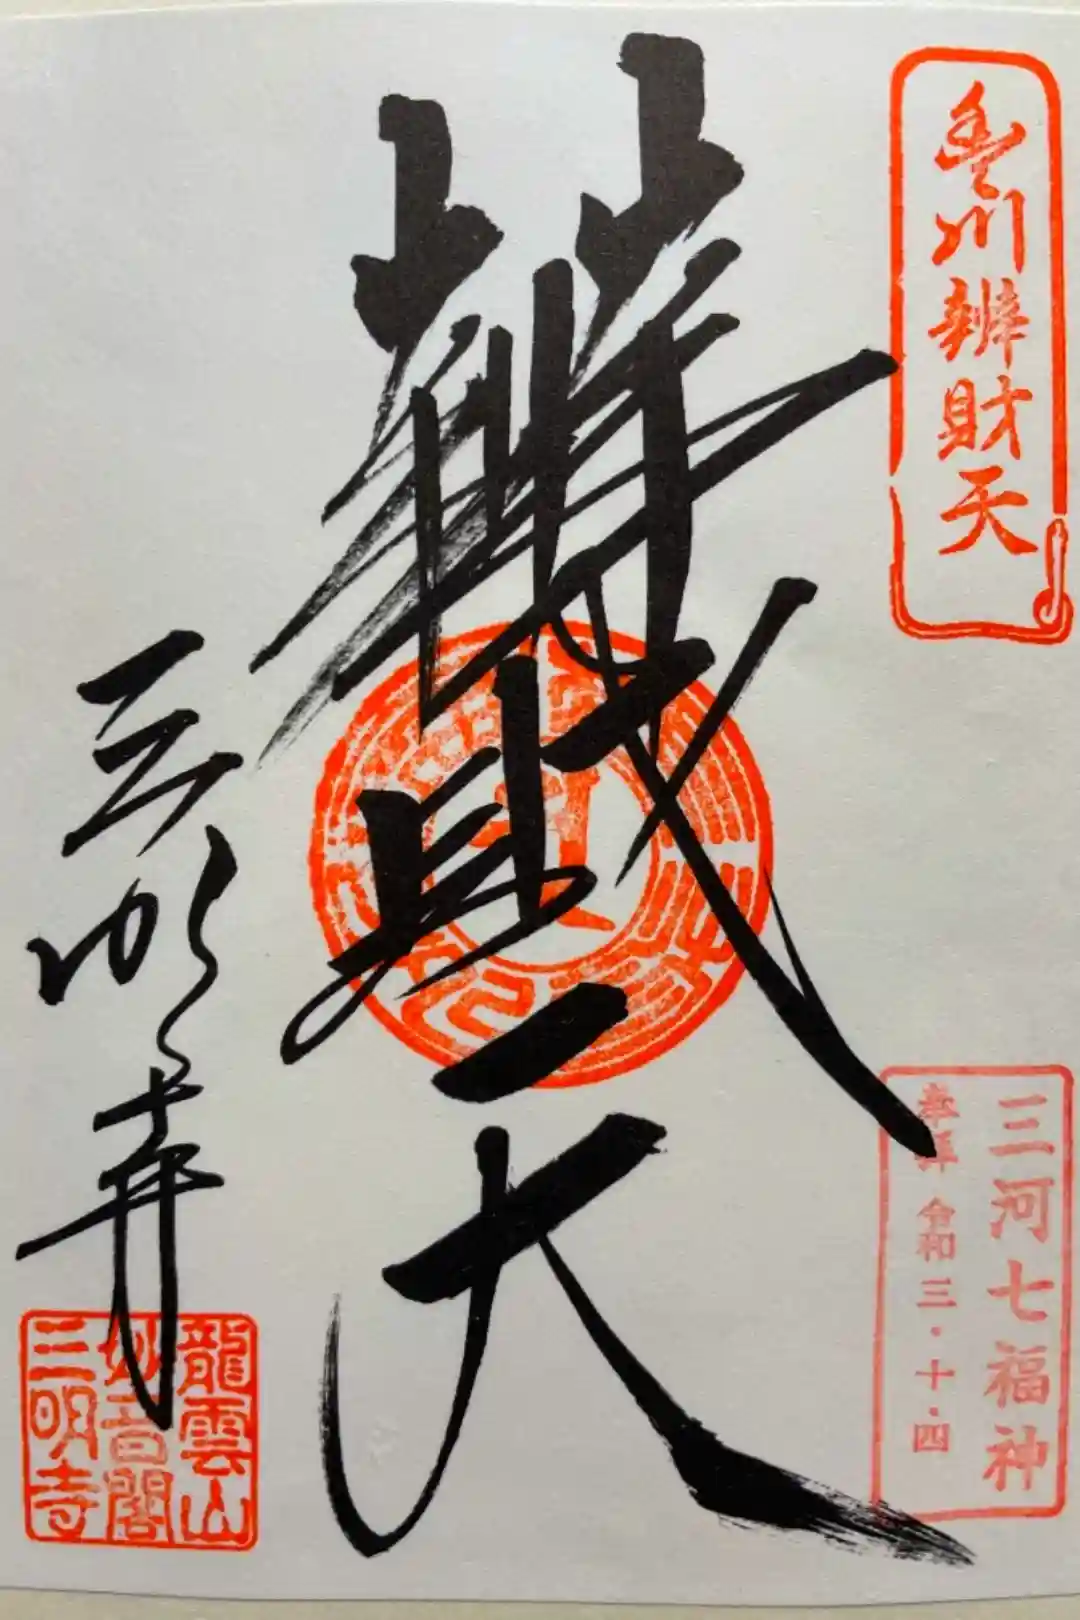 豊川辨財天
三河七福神
奉拝 令和三・十・四
辨財天
三明寺
龍雲山
妙音閣
三明寺